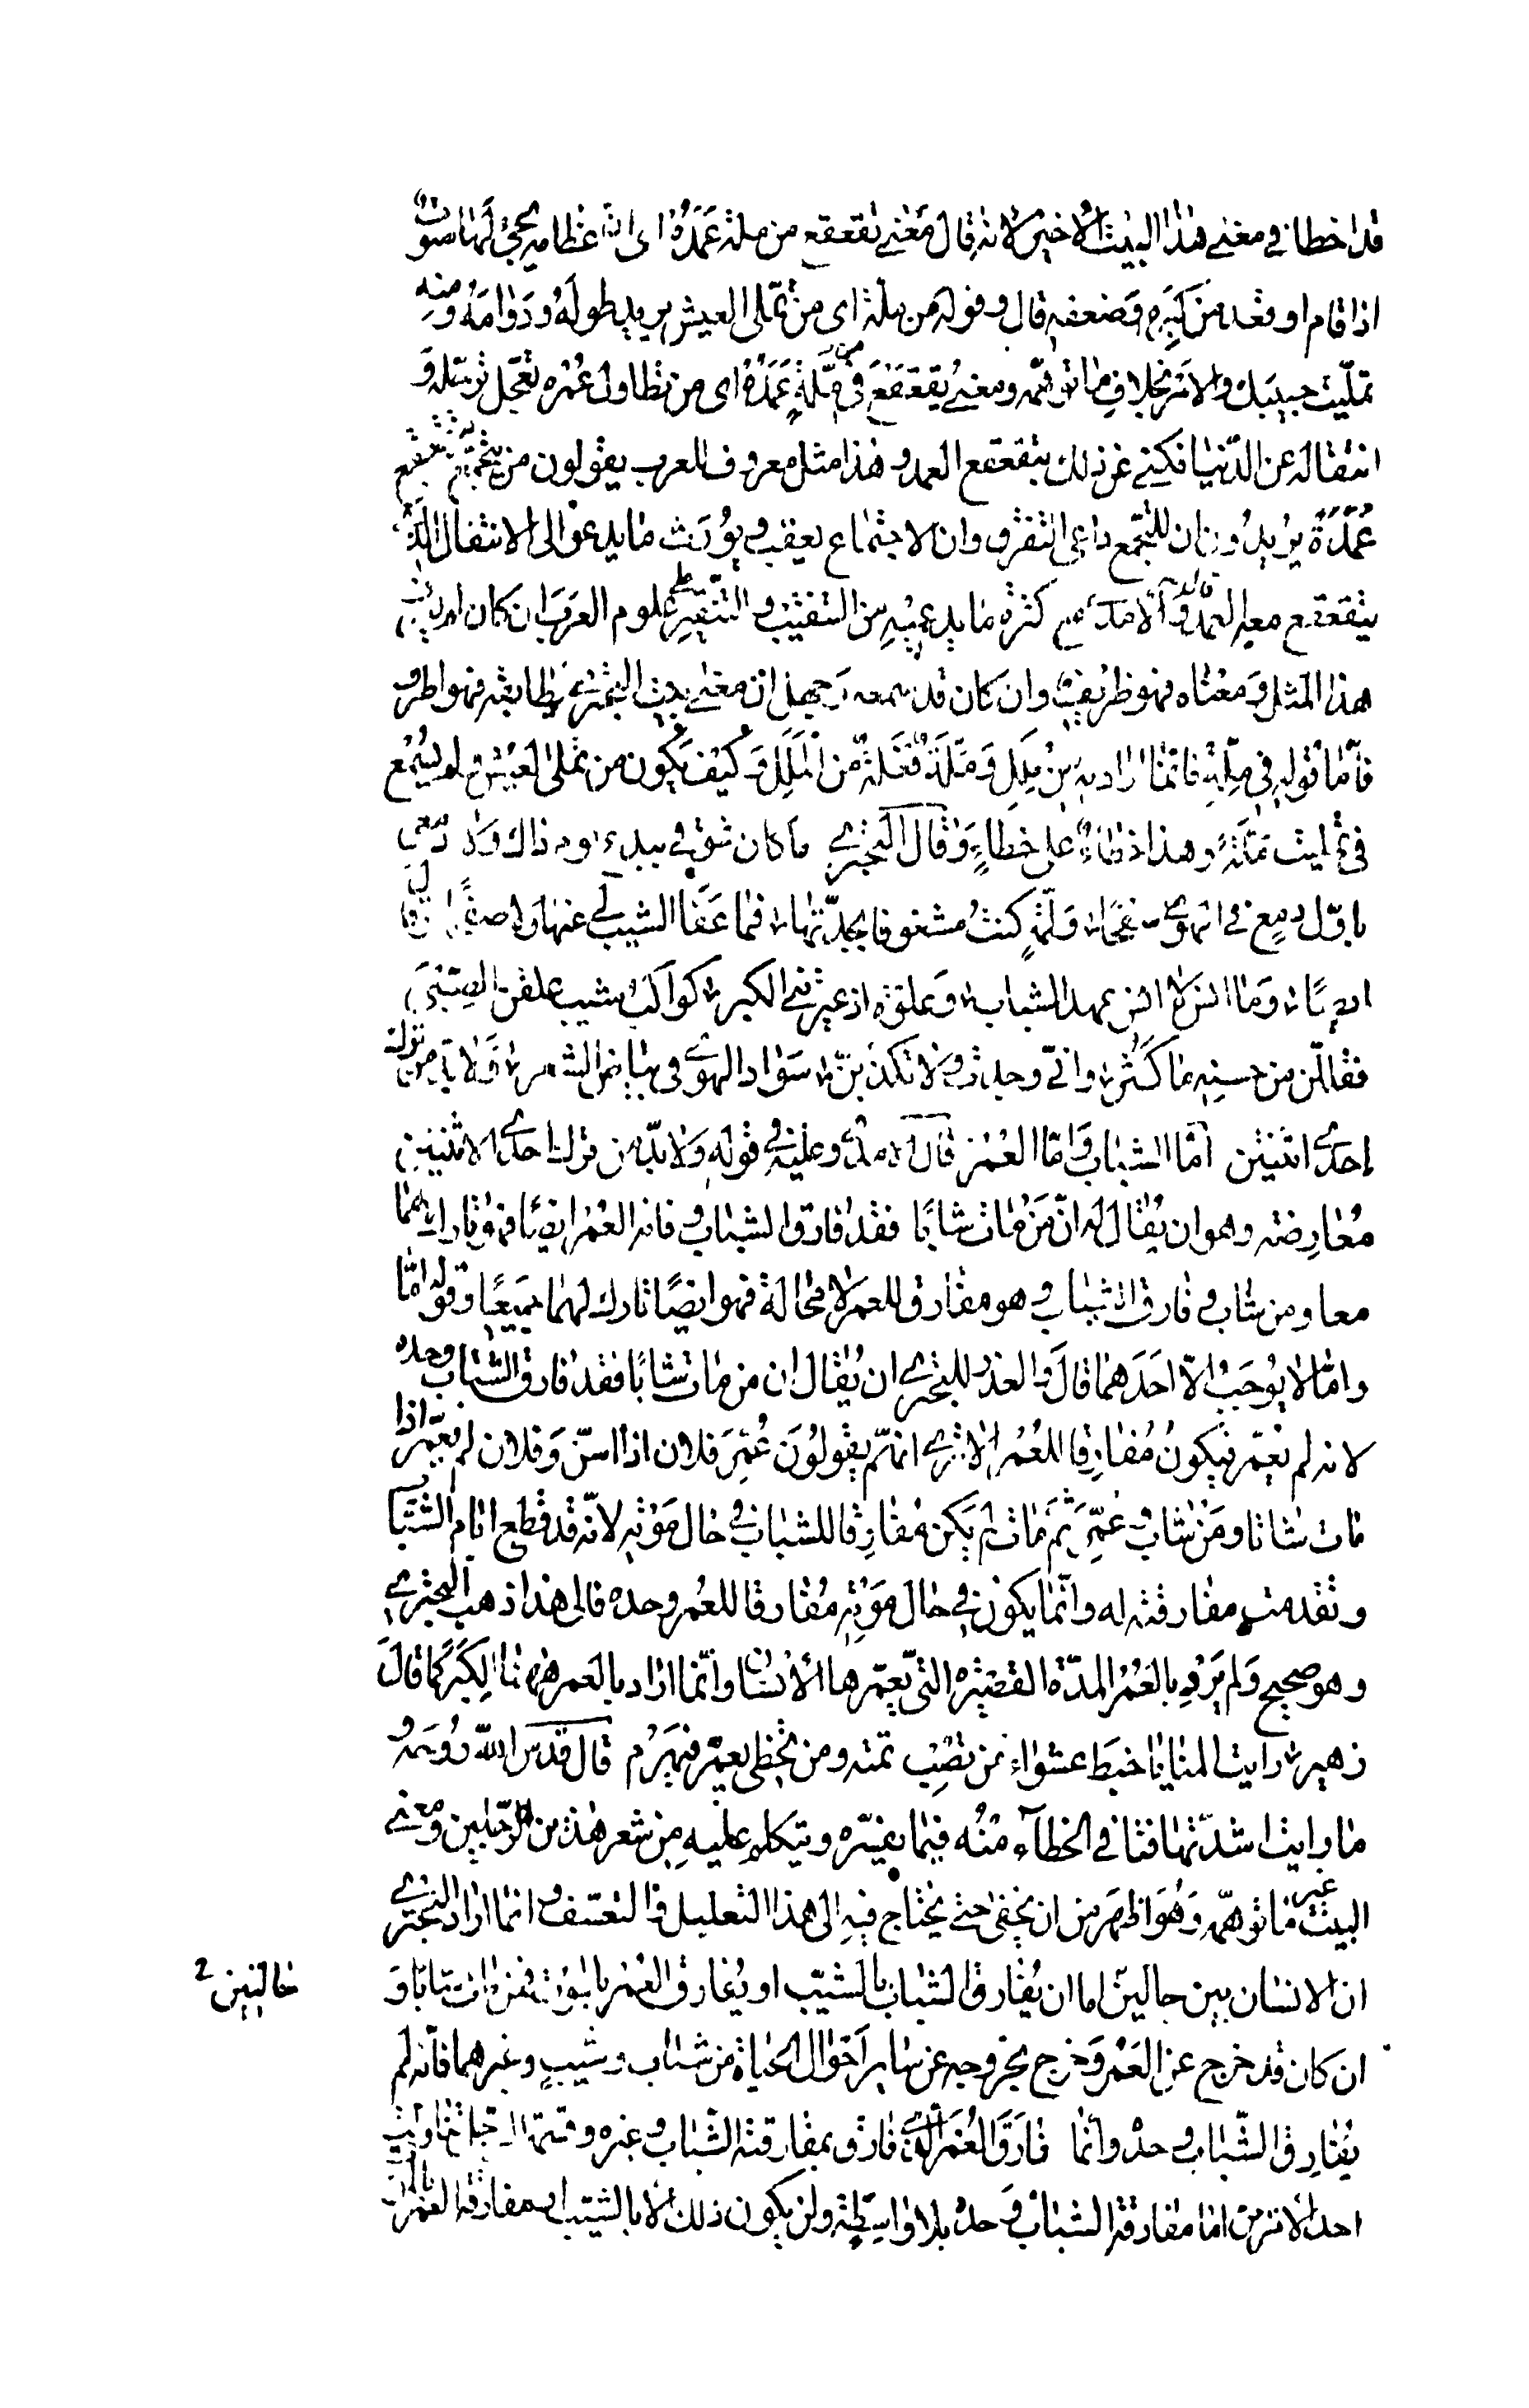 قد اخطا في معنى هذا البيت الاخير لانه قال معنى تقعقع من ملة عمده اى ان عظامه يجئ لها صوت
اذا قام او قعد من كبره وضعفه قال وقوله من ملة اى من تملى العيش يريد طوله ودوامه ومنه
تمليت حبيبك والامر بخلاف ما توهمه ومعنى يتقعقع في ملة عمده اى من تطاول عمره تعجل ترحله و
انتقاله عن الدنيا فكنى عن ذلك بتقعقع العمد وهذا مثل معروف للعرب يقولون من يتجمع يتقعقع
عمده يريدون ان التجمع داعى التفرق وان الاجتماع يعقب ويورث ما يدعو الى الانتقال الذى
يتقعقع معه العمد والآمدى مع كثرة ما يدعيه من التفتيش والتنقير على علوم العرب ان كان لم
هذا المثل ومعناه فهو ظريف وان كان قد سمعه وجهل ان معنى بيت البحترى يطابقه فهو اظرف
فاما قوله في ملة فانما اراد به من ملل وملة فعلة من الملل وكيف يكون من تملى العيش ولم يسمع
في تمليت ملة وهذا خطاء على خطاء وقال البحترى ما كان شوقى ببدع يوم ذاك ولا دمعى
باول دمع في الهوى سفحا ولمة كنت مشغوفا بجدتها فما عفا الشيب لى عنها ولا صفحا وقال
ايضا وما انس لا انس عهد الشباب وعلوة اذ عيرتنى الكبر كواكب شيب علقن الصبى
فقللن من حسنه ما كثر وانى وجدت ولا تكذبن سواد الهوى في بياض الشعر ولا بد من ترك
احدى اثنتين اما الشباب واما العمر قال الآمدى وعليه في قوله ولا بد من ترك احدى الاثنتين
معارضة وهو ان يقال له ان من مات شابا فقد فارق الشباب وفاته العمر ايضا فهو تارك لهما
معا ومن شاب فارق الشباب وهو مفارق للعمر لا محالة فهو ايضا تارك لهما جميعا وقوله اما
واما لا يوجب الا احدهما قال والعذر للبحترى ان يقال ان من مات شابا فقد فارق الشباب وحده
لانه لم يعمر فيكون مفارقا للعمر الا ترى انهم يقولون عمر فلان اذا اسن وفلان لم يعمر اذا
مات شابا ومن شاب وعمر ثم مات لم يكن مفارقا للشباب في حال موته لانه قد قطع ايام الشباب
وتقدمت مفارقته له وانما يكون في حال موته مفارقا للعمر وحده فالى هذا ذهب البحترى
وهو صحيح ولم يرد بالعمر المدة القصيرة التى يعمرها الانسان وانما اراد بالعمر هاهنا الكبر كما قال
زهير رايت المنايا خبط عشواء من تصب تمته ومن تخطئ يعمر فيهرم قال قدس الله روحه
ما رايت اشد تهافتا في الخطآء منه فيما يفسره ويتكلم عليه من شعر هذين الرجلين ومعنى
البيت غير ما توهمه وهو اظهر من ان يخفى حتى يحتاج فيه الى هذا التعليل والتعسف وانما اراد البحترى
ان الانسان بين حالين اما ان يفارق الشباب بالشيب او يفارق العمر بالموت فمن مات شابا و
حالتين 2
ان كان قد خرج عن العمر وخرج بخروجه عن ساير احوال الحياة من شباب وشيب وغيرهما فانه لم
يفارق الشباب وحده وانما فارق العمر الذى فارق بمفارقته الشباب وغيره
احد الامرين اما مفارقة الشباب وحده بلا واسطة ولن يكون ذلك الا بالشيب او مفارقة العمر